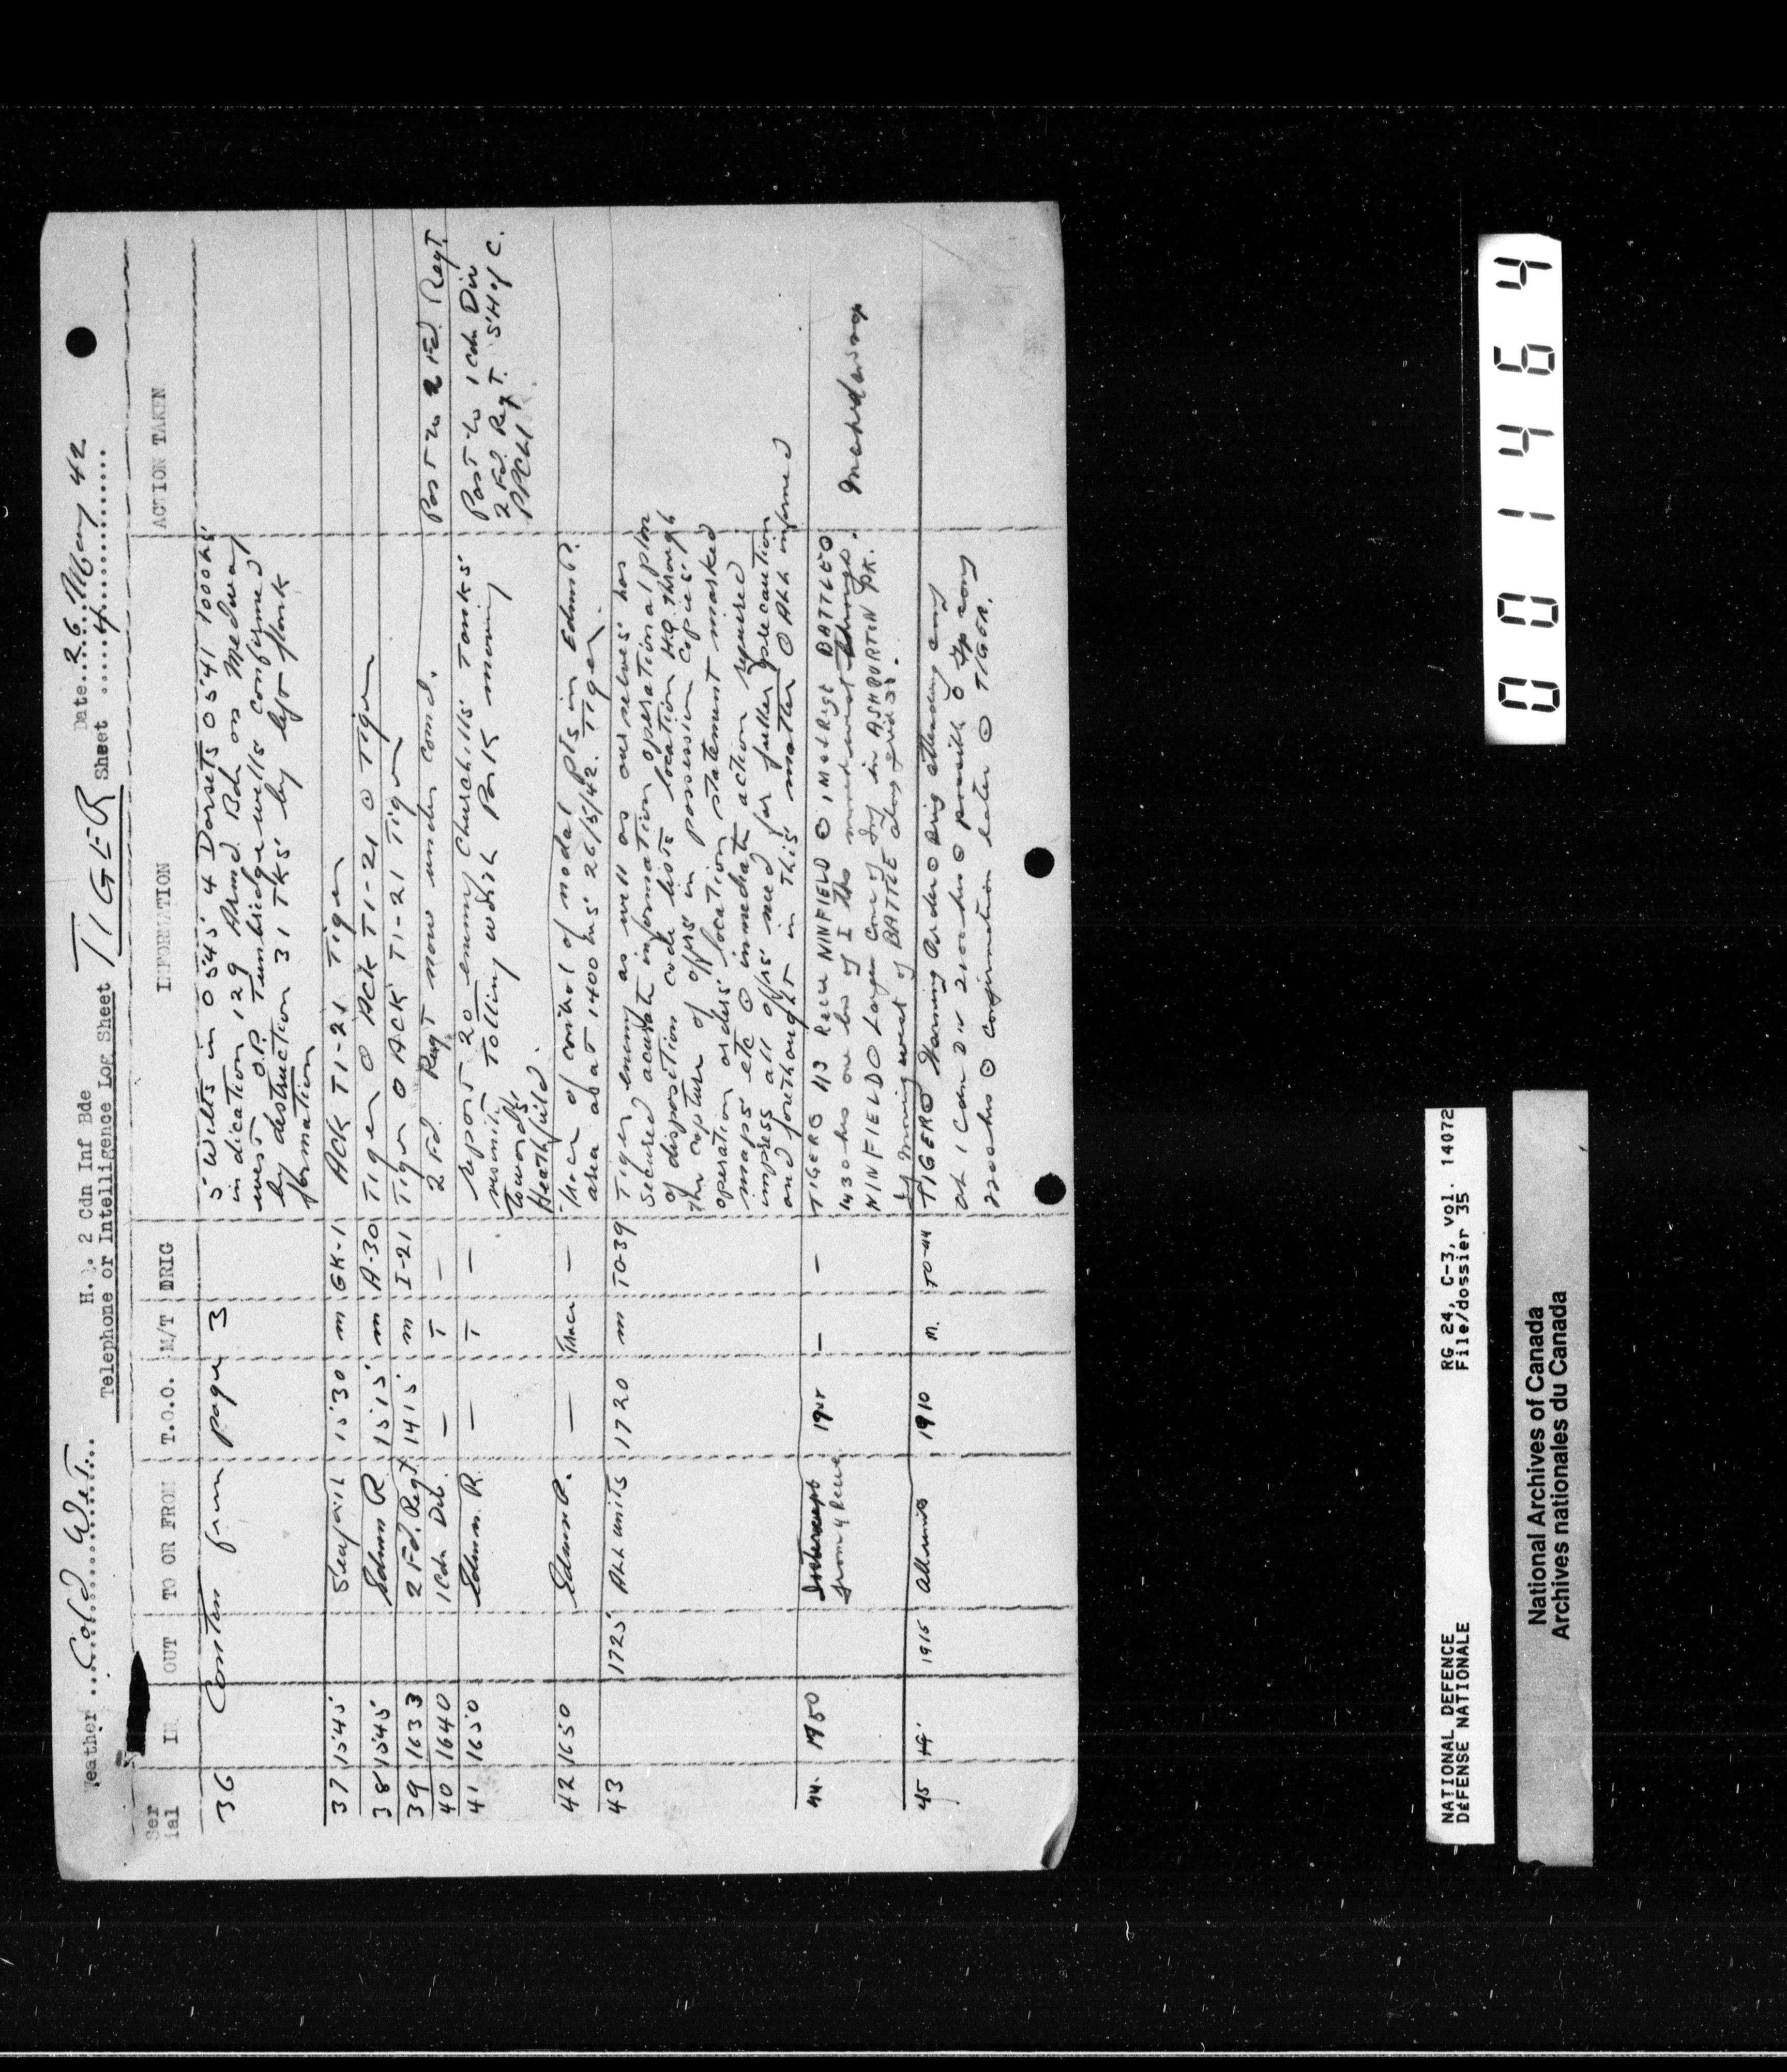 Weather ...Cold Wet...
H.Q. 2 Cdn Inf Bde
Telephone or Intelligence Log Sheet
TIGER
Date..26 May 42
Sheet .....4............
Ser
ial IN OUT TO OR FROM T.O.O. M/T ORIG INFORMATION ACTION TAKEN
36 Conten from page 3 5 Wilts in 0545 4 Dorsets 0541 1000 hrs
indication 129 Armd Bde on Medway
west O.P. Tunbridge wells confirmed
by destruction 31 TKS by left flank
formation
37 1545 Seaforth 1530 m GK-1 ACK T1-21 Tiger
38 1545 Edmn R 1515 m A-30 Tiger O ACK T1-21 O Tiger
39 1633 2 Fd. Regt 1415 m I-21 Tiger O ACK T1-21 Tiger
40 1640 1 Cdn Div. — T — 2 Fd. Regt now under comd. Post to 2 Fd. Regt.
41 1650 Edmn. R. — T — report 20 enemy Churchills Tanks
vicinity Tolling worth Park moving
towards
Heathfield.
Post to 1 Cdn Div
2 Fd. Regt. SH of C.
PPCLI
42 1650 Edmn R. — Trace — Trace of control of nodal pts in Edmn R.
area as at 1400 hrs 26/5/42. Tiger.
43 1725 ALL units 1720 m TO-39 Tiger enemy as well as ourselves has
secured accurate information operational plan
of disposition code lists location HQ through
the capture of offrs in possession copies
operation orders location statement marked
maps etc O immediate action required
impress all offrs need for further precaution
and forethought in this matter O ALL informed
44. 1950 Intercept
from 4 Recce — — TIGER O 43 Recce NINFIELD O 1 Mot Regt BATTLE O
1430 hrs one bn of I Tks moved west
NINFIELD O Large conc of Inf in ASHBURTON PK.
Inf moving west of BATTLE along
45 1915 All units 1910 m. TO-44 TIGER O Warning Order O Brig attending conf
at 1 Cdn Div 2100 hrs O possible O Gp conf
2200 hrs O confirmation later O TIGER.
001464
NATIONAL DEFENCE RG 24, C-3, vol. 14072
DÉFENSE NATIONALE File/dossier 35
National Archives of Canada
Archives nationales du Canada